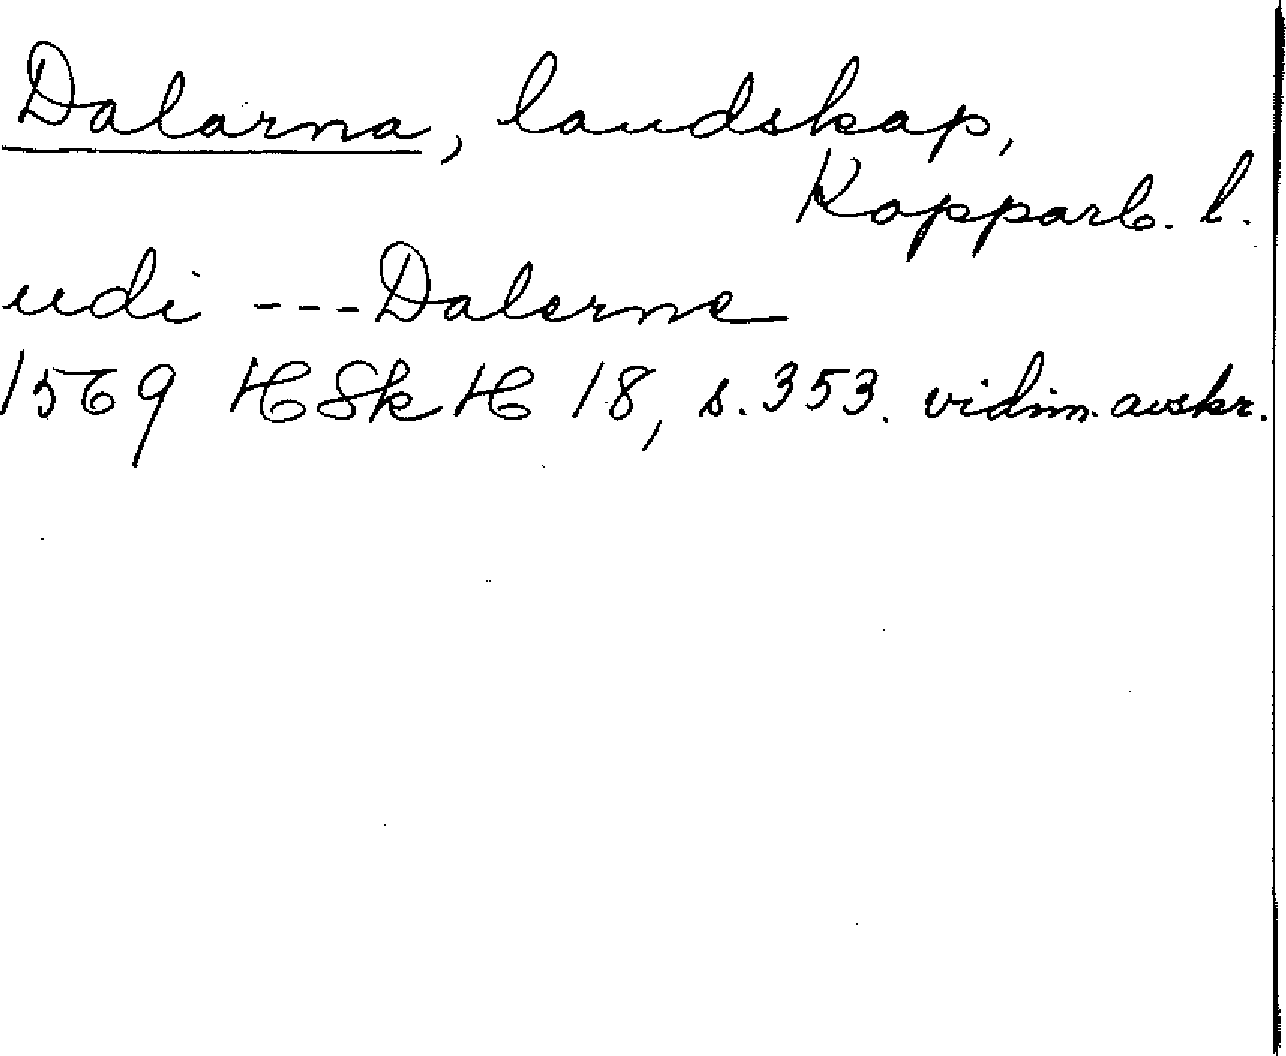 Dalarna, landskap,
Kopparb. l.
udi --- Dalerne
1569 HSkH 18, s. 353. vidim. avskr.